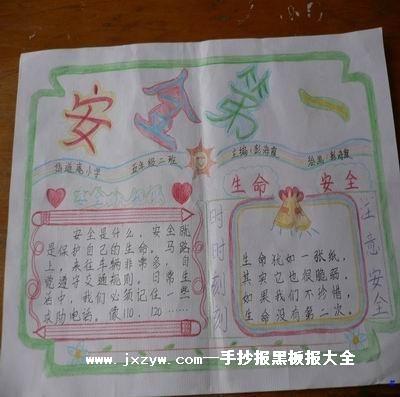 安全第一
小学 五年级二班 主编:彭海霞 绘画:彭海霞
安全是什么,安全就
是保护自己的生命。马路
上,来往车辆非常多,自
觉遵守交通规则,日常生
活中,我们必须记住一些
求助电话。像110,120……
生命 安全
时时刻刻
生命犹如一张纸,
其实它也很脆弱,
如果我们不珍惜,
生命没有第二次。
注意安全
www.jxzyw.com—手抄报黑板报大全